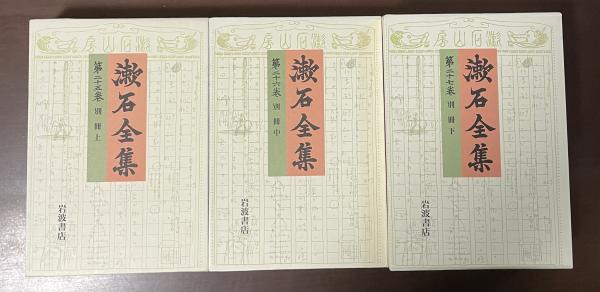 漱石山房
漱石全集
第二十五巻 別冊上
岩波書店
漱石山房
漱石全集
第二十六巻 別冊中
岩波書店
漱石山房
漱石全集
第二十七巻 別冊下
岩波書店